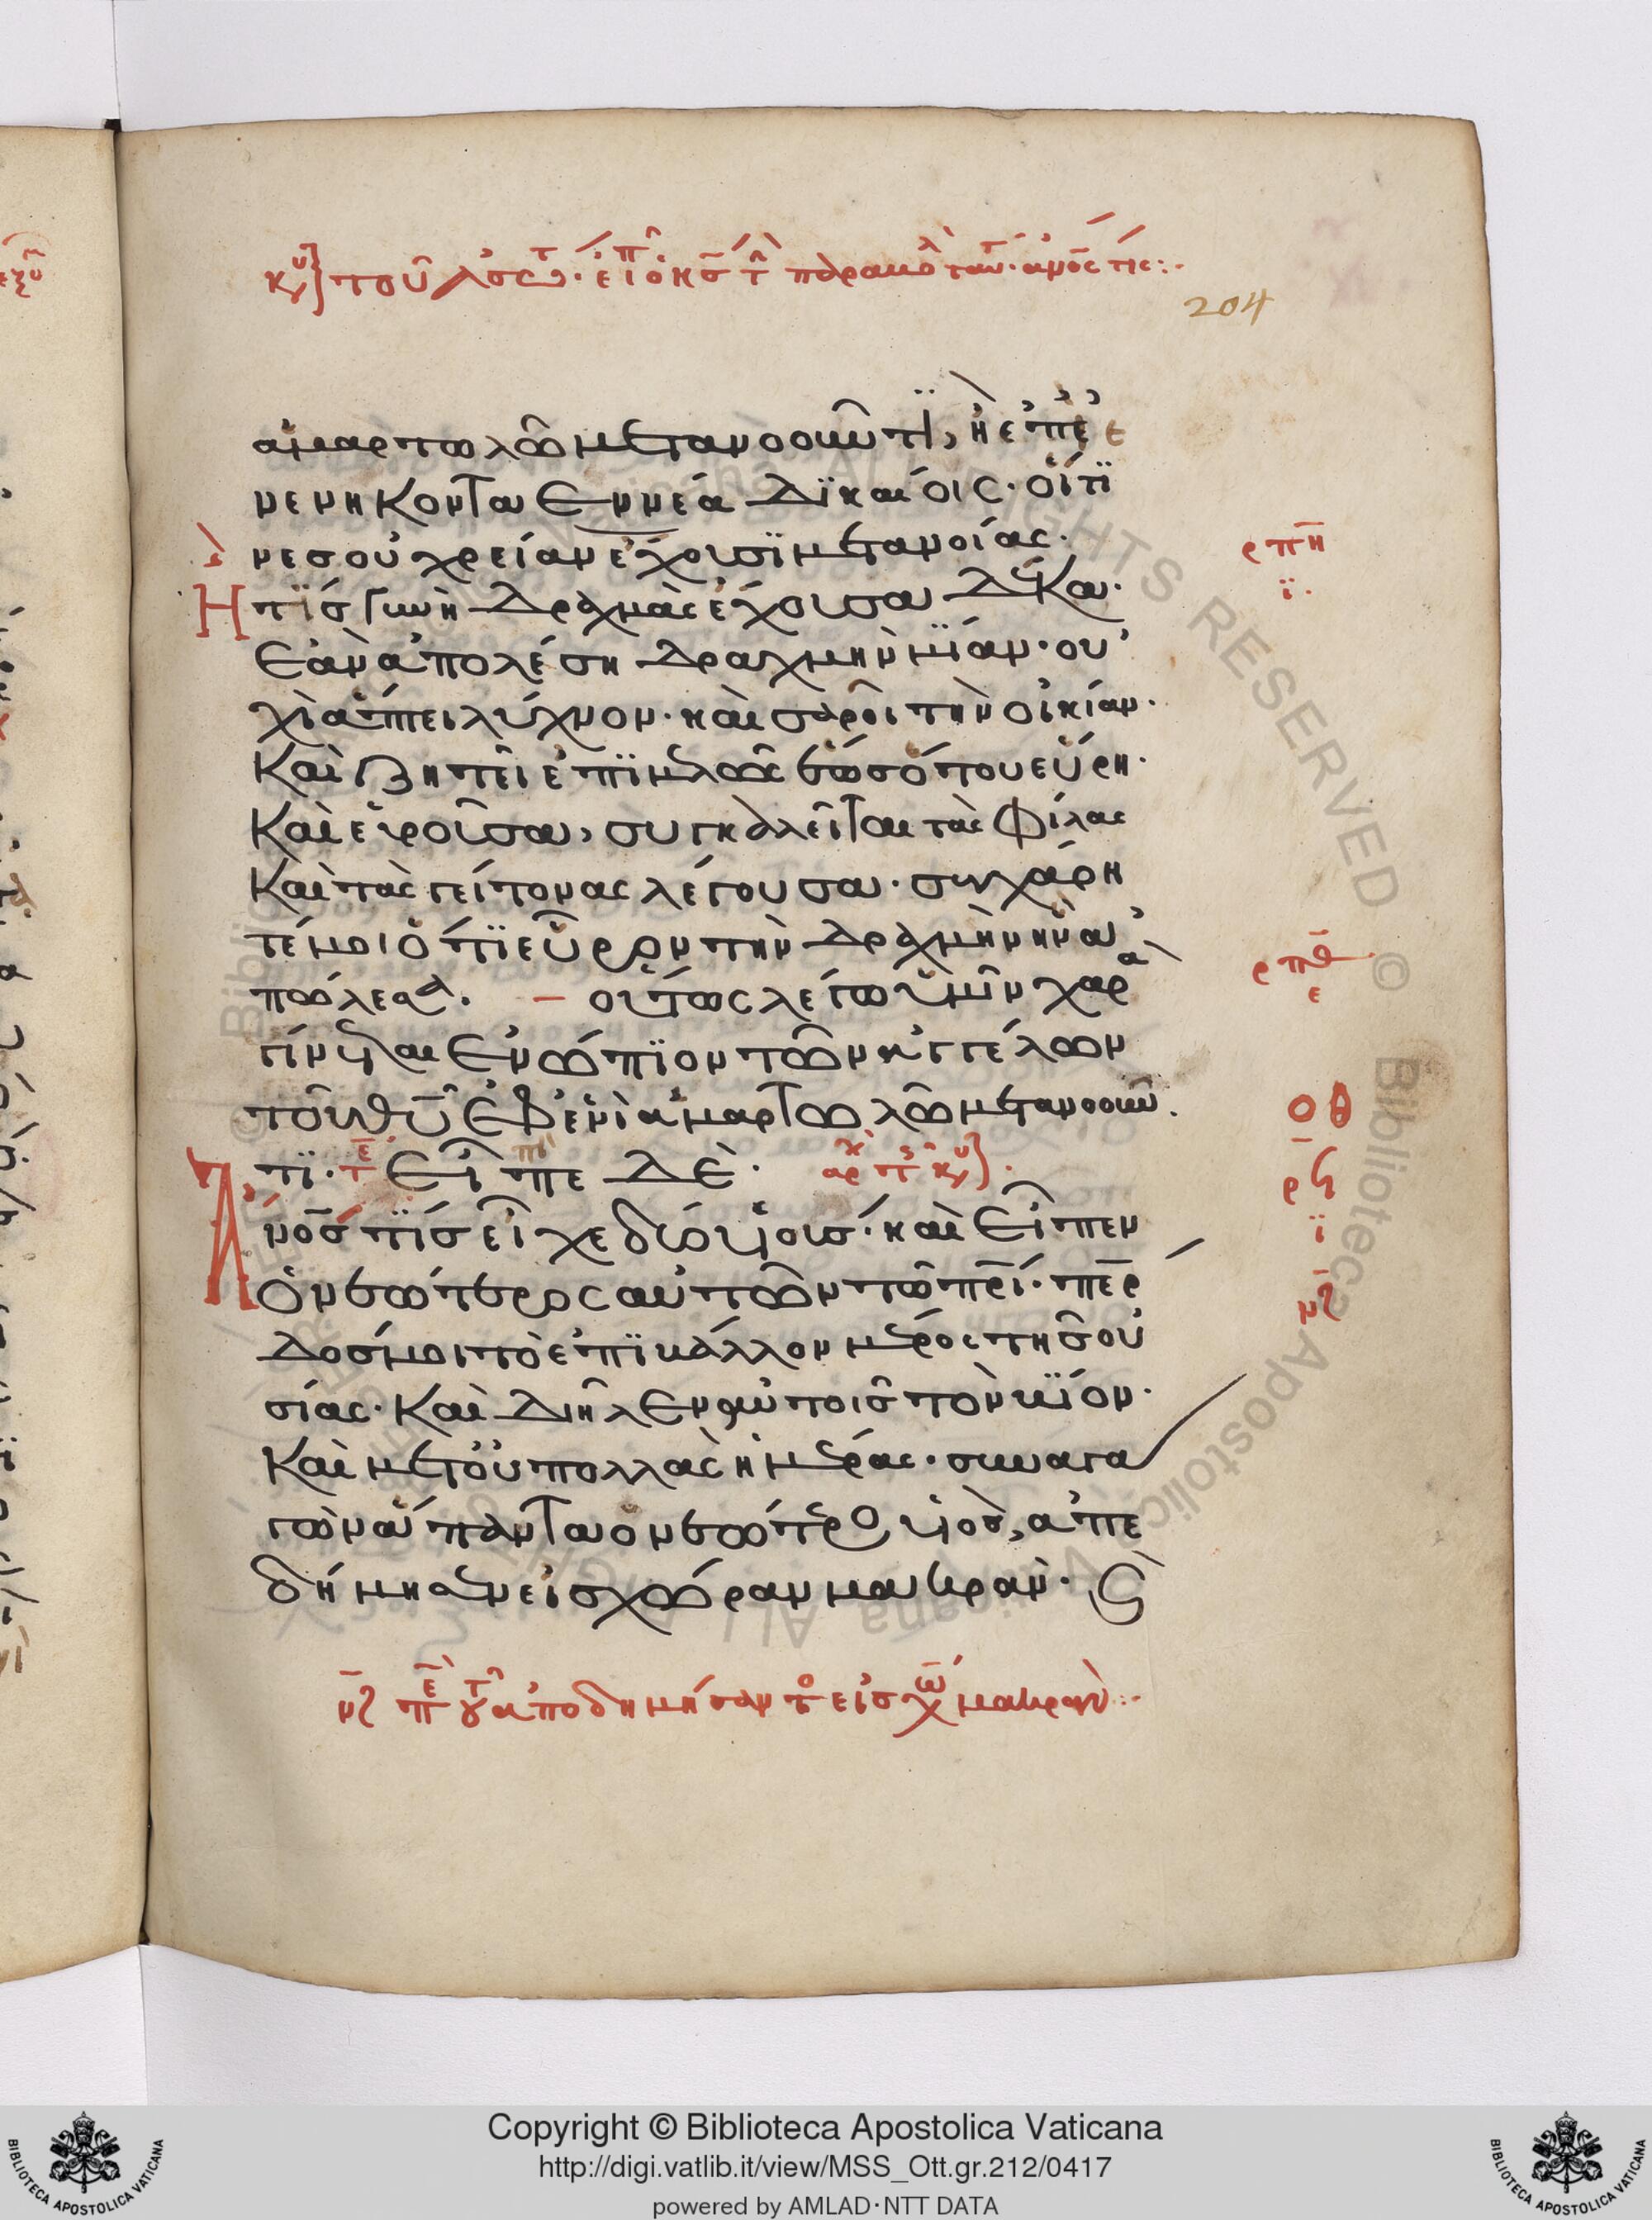 204
ἁμαρτωλῶ μετανοοῦντϊ, ἢ ἐπὶ ἐ
νενηκοντα ἐννέα δϊκαίοις· οἵτϊ
νες οὐ χρείαν ἔχουσϊ μετανοίας·
Η τϊς γυνὴ δραχμὰς ἔχουσα δέκα·
ἐὰν ἀπολέση δραχμὴν μϊαν· οὐ
χὶ ἅπτει λύχνον· καὶ σαροῖ τὴν οἰκίαν·
καὶ ζητεῖ ἐπϊμελῶς ἕως ὅτου εὕρη·
καὶ εὑροῦσα, συγκαλεῖται τὰς φίλας
καὶ τὰς γείτονας λέγουσα· συγχάρη
τέ μοι ὅτϊ εὗρον τὴν δραχμὴν ἣν ἀ
πώλεσα. οὕτως λέγω ὑμῖν χαρὰ
γίνεται ἐνώπϊον τῶν ἀγγέλων
τοῦ θῦ ἐπὶ ἑνὶ ἁμαρτωλῶ μετανοοῦν
τϊ. τε Εἶπε δὲ·
Ανος τϊς εἶχε δύο υἱούς· καὶ εἶπεν
ὁ νεώτερος αὐτῶν τῶ πρί· περ
δός μοι τὸ ἐπϊβάλλον μέρος τῆς οὐ
σίας· καὶ διεῖλεν αὐτοῖς τὸν βϊον·
καὶ μετ οὐ πολλὰς ἡμέρας· συναγα
γὼν ἅπαντα ὁ νεώτερος υἱὸς, ἀπε
δήμησεν εἰς χώραν μακραν·
ρπη
ϊ.
ρπθ
ε
οθ
ρϟ
ϊ
Copyright © Biblioteca Apostolica Vaticana
http://digi.vatlib.it/view/MSS_Ott.gr.212/0417
powered by AMLAD·NTT DATA
BIBLIOTECA APOSTOLICA VATICANA
BIBLIOTECA APOSTOLICA VATICANA